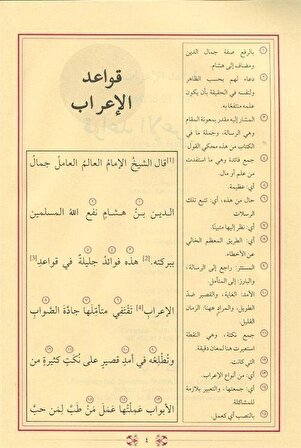 قواعد
الإعراب
[1]قال الشيخُ الإمامُ العالمُ العاملُ جمالُ
الدين بنُ هشام نفع اللهُ المسلمين
ببركته. [2] هذه فوائدُ جليلةٌ في قواعدِ [3]
الإعرابِ [4] تَقْتَفِي متأمِّلَها جادّةَ الصَّوابِ
وتُطْلِعُه في أمدٍ قصيرٍ على نُكَتٍ كثيرةٍ من
الأبوابِ عَمِلْتُها عَمَلَ مَنْ طَبَّ لِمَن حَبَّ
بالرفع صفة جمال الدين
ومضاف إلى هشام.
دعاء لهم بحسب الظاهر
ولنفسه في الحقيقة بأن يكون
علمه منتفعًا به.
المشار إليه مقدر بمعونة المقام
وهي الرسالة، وجملة ما في
الكتاب من هذه محكي القول
جمع فائدة وهي ما استفدت
من علم أو مال.
أي: عظيمة.
حال من هذه، أي: تتبع تلك
الرسالات
أي: نظر إليها متبينًا.
أي: الطريق المعظم الخالي
عن الأخطاء.
المستتر: راجع إلى الرسالة،
والبارز: إلى المتأمل.
الأمد: الغاية، والقصير ضدّ
الطويل، والمراد ههنا: الزمان
القليل.
جمع نكتة، وهي النقطة
استعيرت هنا لمعان دقيقة.
التي كانت.
أي: من أنواع الإعراب.
أي: جمعتها، والتعبير بلازمة
للمشاكلة.
بالنصب أي كعمل.
٤